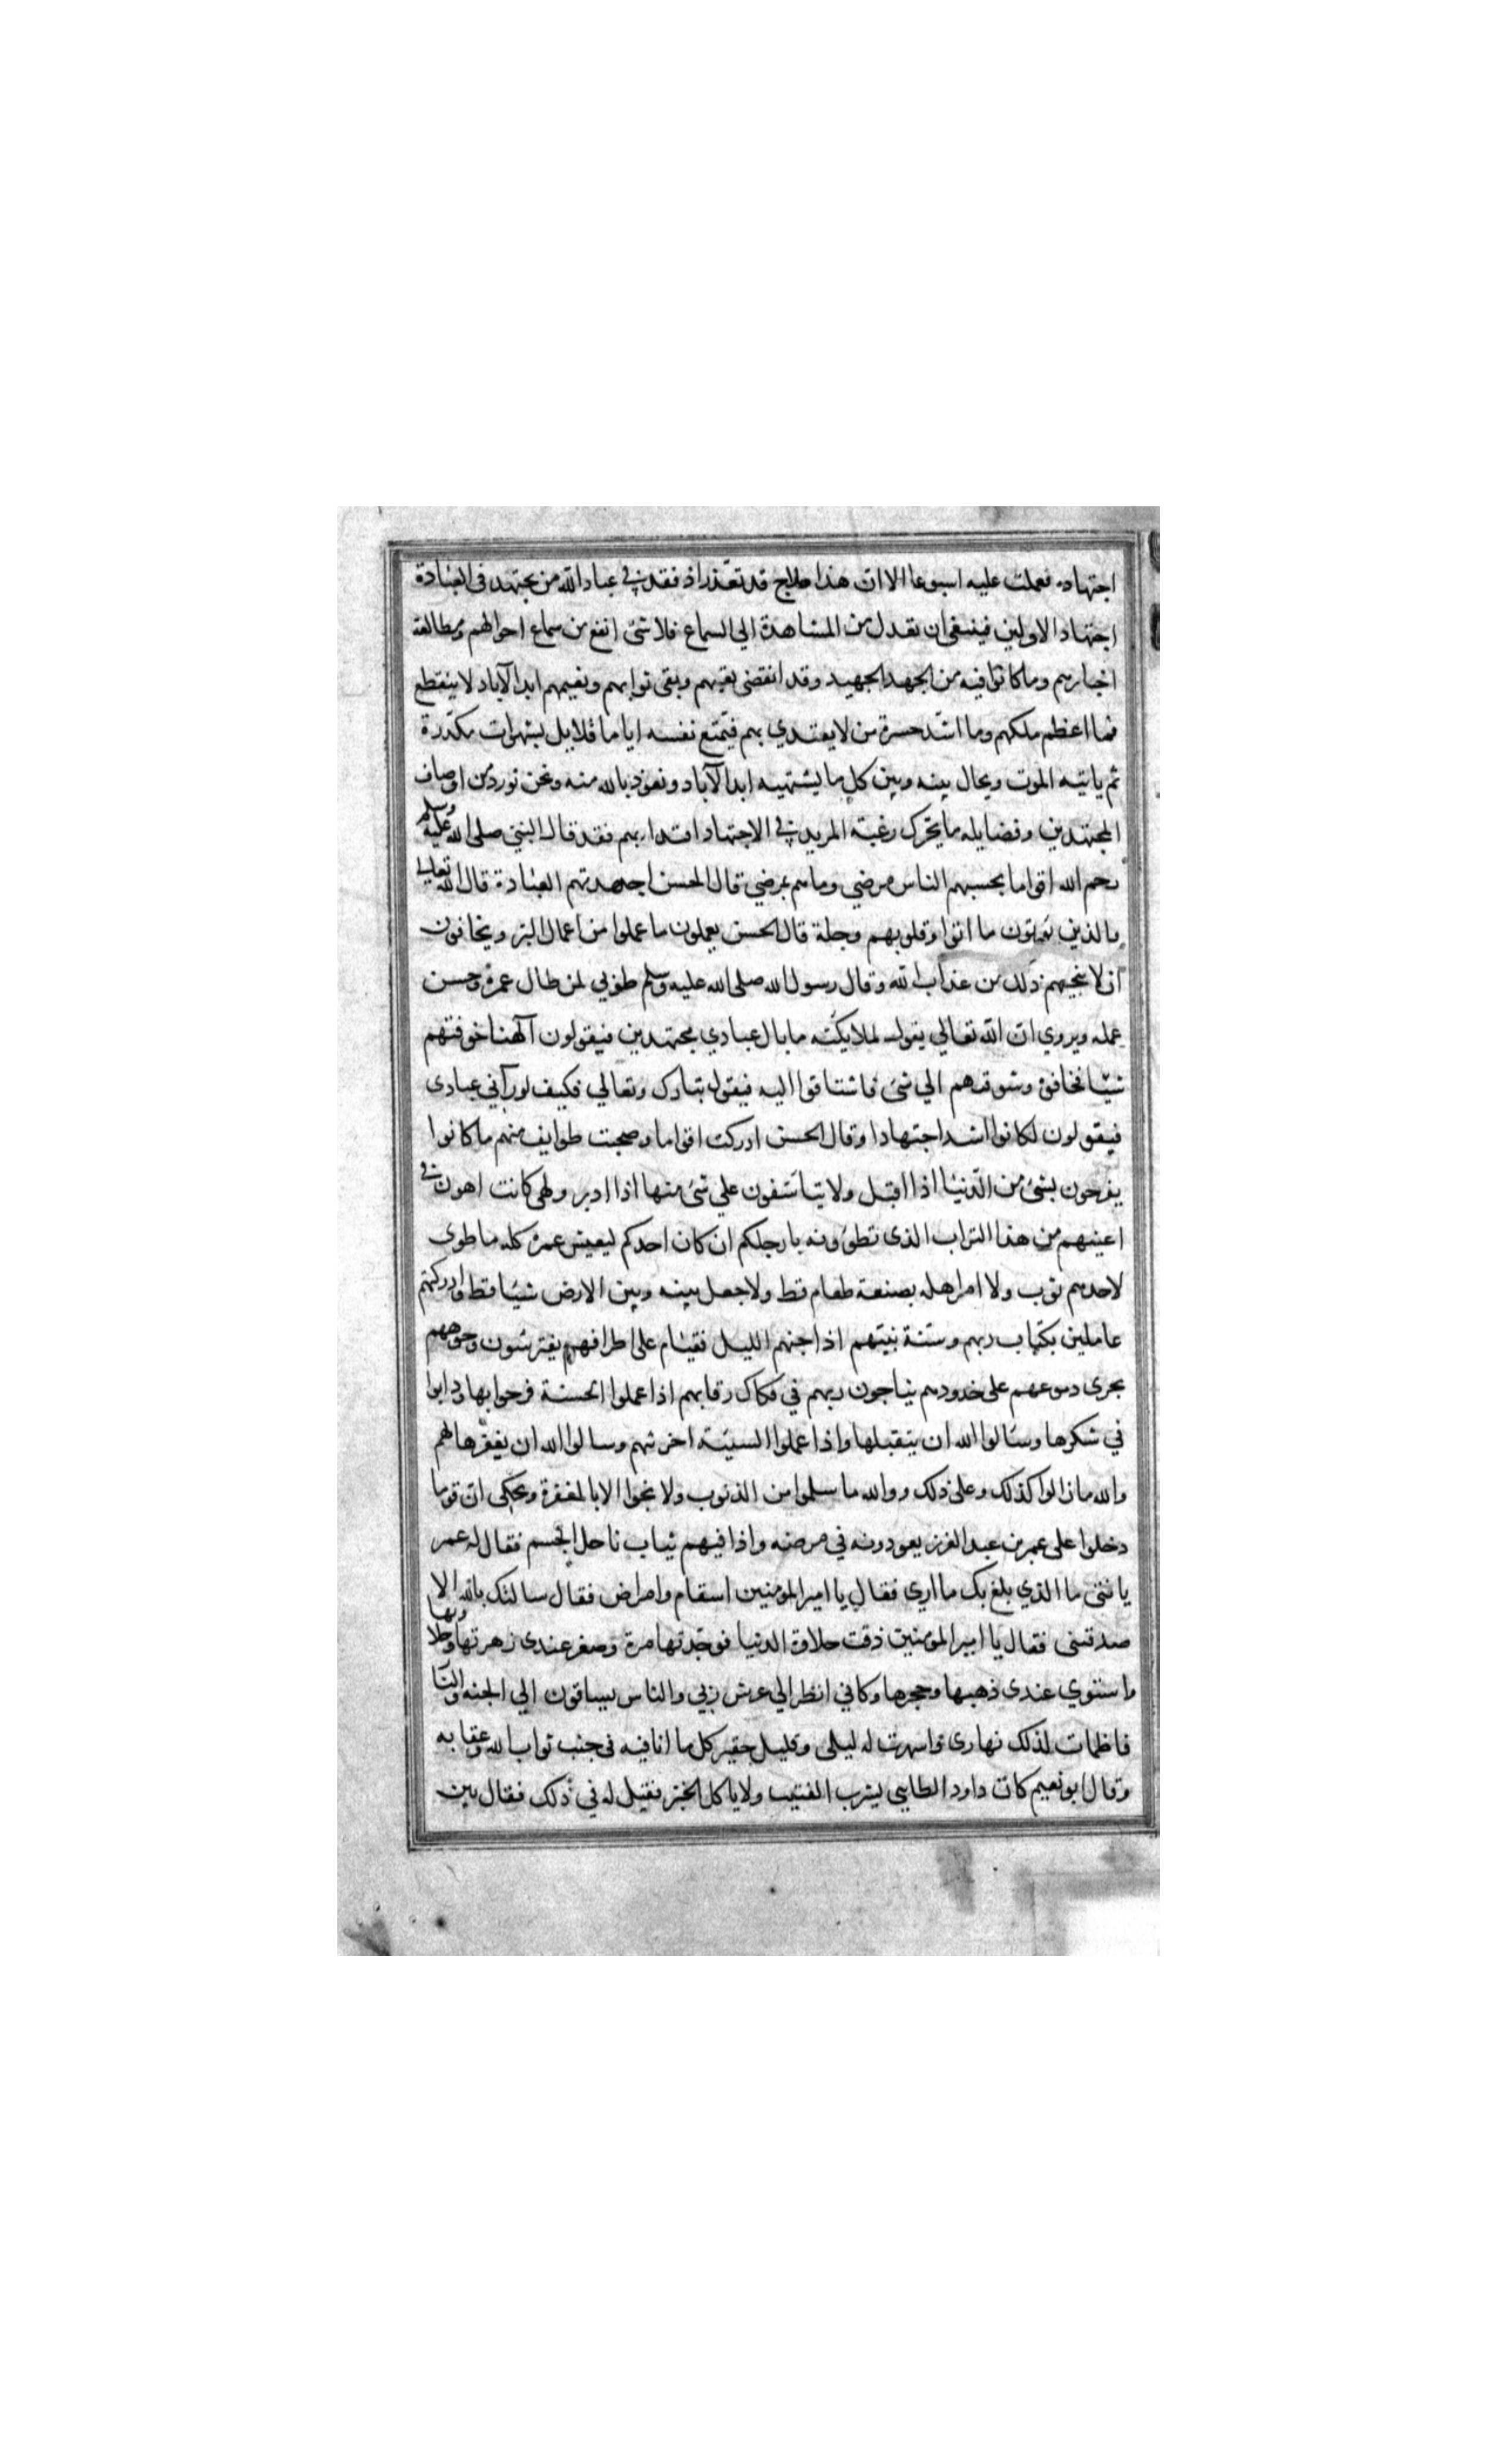 اجتهاده فعملت عليه اسبوعا الا ان هذا علاج قد تعذر اذ فقد في عباد الله من يجتهد في العبادة
اجتهاد الاولين فينبغي ان نعدل من المشاهدة الي السماع فلا شئ انفع من سماع احوالهم ومطالعة
اخبارهم وما كانوا فيه من الجهد الجهيد وقد انقضي تعبهم وبقي ثوابهم ونعيمهم ابد الآباد لا ينقطع
فما اعظم ملكهم وما اشد حسرة من لا يقتدي بهم فيمتع نفسه اياما قلايل بشهوات مكدرة
ثم ياتيه الموت ويحال بينه وبين كل ما يشتهيه ابد الآباد ونعوذ بالله منه ونحن نورد من اوصاف
المجتهدين وفضايله ما يحرك رغبة المريد في الاجتهاد اقتدا بهم فقد قال النبي صلى الله عليه وسلم
رحم الله اقواما يحسبهم الناس مرضي وما هم بمرضي قال الحسن اجهدتهم العبادة قال الله تعالى
والذين يؤتون ما اتوا وقلوبهم وجلة قال الحسن يعملون ما عملوا من اعمال البر ويخافون
ان لا ينجيهم ذلك من عذاب الله وقال رسول الله صلى الله عليه وسلم طوبي لمن طال عمره وحسن
عمله ويروي ان الله تعالي يقول لملايكته ما بال عبادي مجتهدين فيقولون آلهنا خوفتهم
شيئا فخافوه وشوقتهم الي شئ فاشتاقوا اليه فيقول تبارك وتعالي فكيف لو رآني عبادى
فيقولون لكانوا اشد اجتهادا وقال الحسن ادركت اقواما وصحبت طوايف منهم ما كانوا
يفرحون بشئ من الدنيا اذا اقبل ولا يتاسفون علي شئ منها اذا ادبر ولهي كانت اهون في
اعينهم من هذا التراب الذى تطؤونه بارجلكم ان كان احدكم ليعيش عمره كله ما طوى
لاحدهم ثوب ولا امر اهله بصنعة طعام قط ولا جعل بينه وبين الارض شيئا قط وادركتهم
عاملين بكتاب ربهم وسنة نبيتهم اذا جنهم الليل فقيام على اطرافهم يفترشون وجوههم
يجرى دموعهم على خدودهم يناجون ربهم في فكاك رقابهم اذا عملوا الحسنة فرحوا بها ودابوا
في شكرها وسالوا الله ان يتقبلها واذا عملوا السيئة احزنتهم وسالوا الله ان يغفرها لهم
والله ما زالوا كذلك وعلى ذلك ووالله ما سلموا من الذنوب ولا نجوا الا بالمغفرة ويحكى ان قوما
دخلوا على عمر بن عبد العزيز يعودونه في مرضه واذا فيهم شاب ناحل الجسم فقال له عمر
يا فتى ما الذي بلغ بك ما ارى فقال يا امير المومنين اسقام وامراض فقال سالتك بالله الا
صدقتنى فقال يا امير المومنين ذقت حلاوة الدنيا فوجدتها مرة وصغر عندى زهرتها وحلاوتها
واستوي عندى ذهبها وحجرها وكاني انظر الي عرش ربي والناس يساقون الي الجنه والنا
فاظمات لذلك نهارى واسهرت له ليلى وقليل حقير كل ما انا فيه في جنب ثواب الله وعقابه
وقال ابو نعيم كان داود الطايي يشرب الفتيت ولا ياكل الخبز فقيل له في ذلك فقال بين